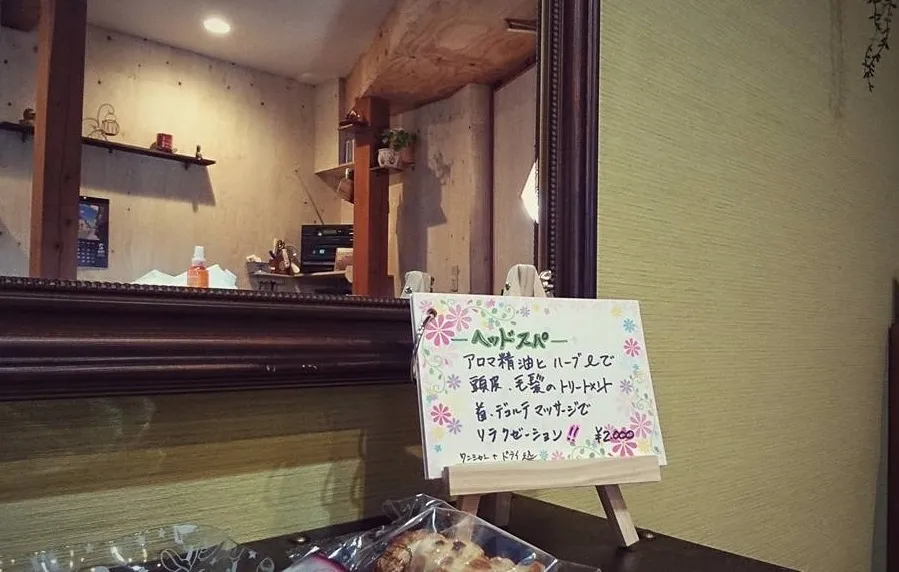 ーヘッドスパー
アロマ精油と ハーブℓで
頭尿、毛髪のトリートメント
首、デコルテマッサージで
リラクゼーション!! ¥2.000
ワンシャン + ドライ込